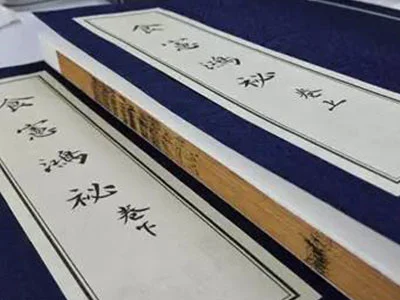 食憲鴻秘 卷上
食憲鴻秘 卷下